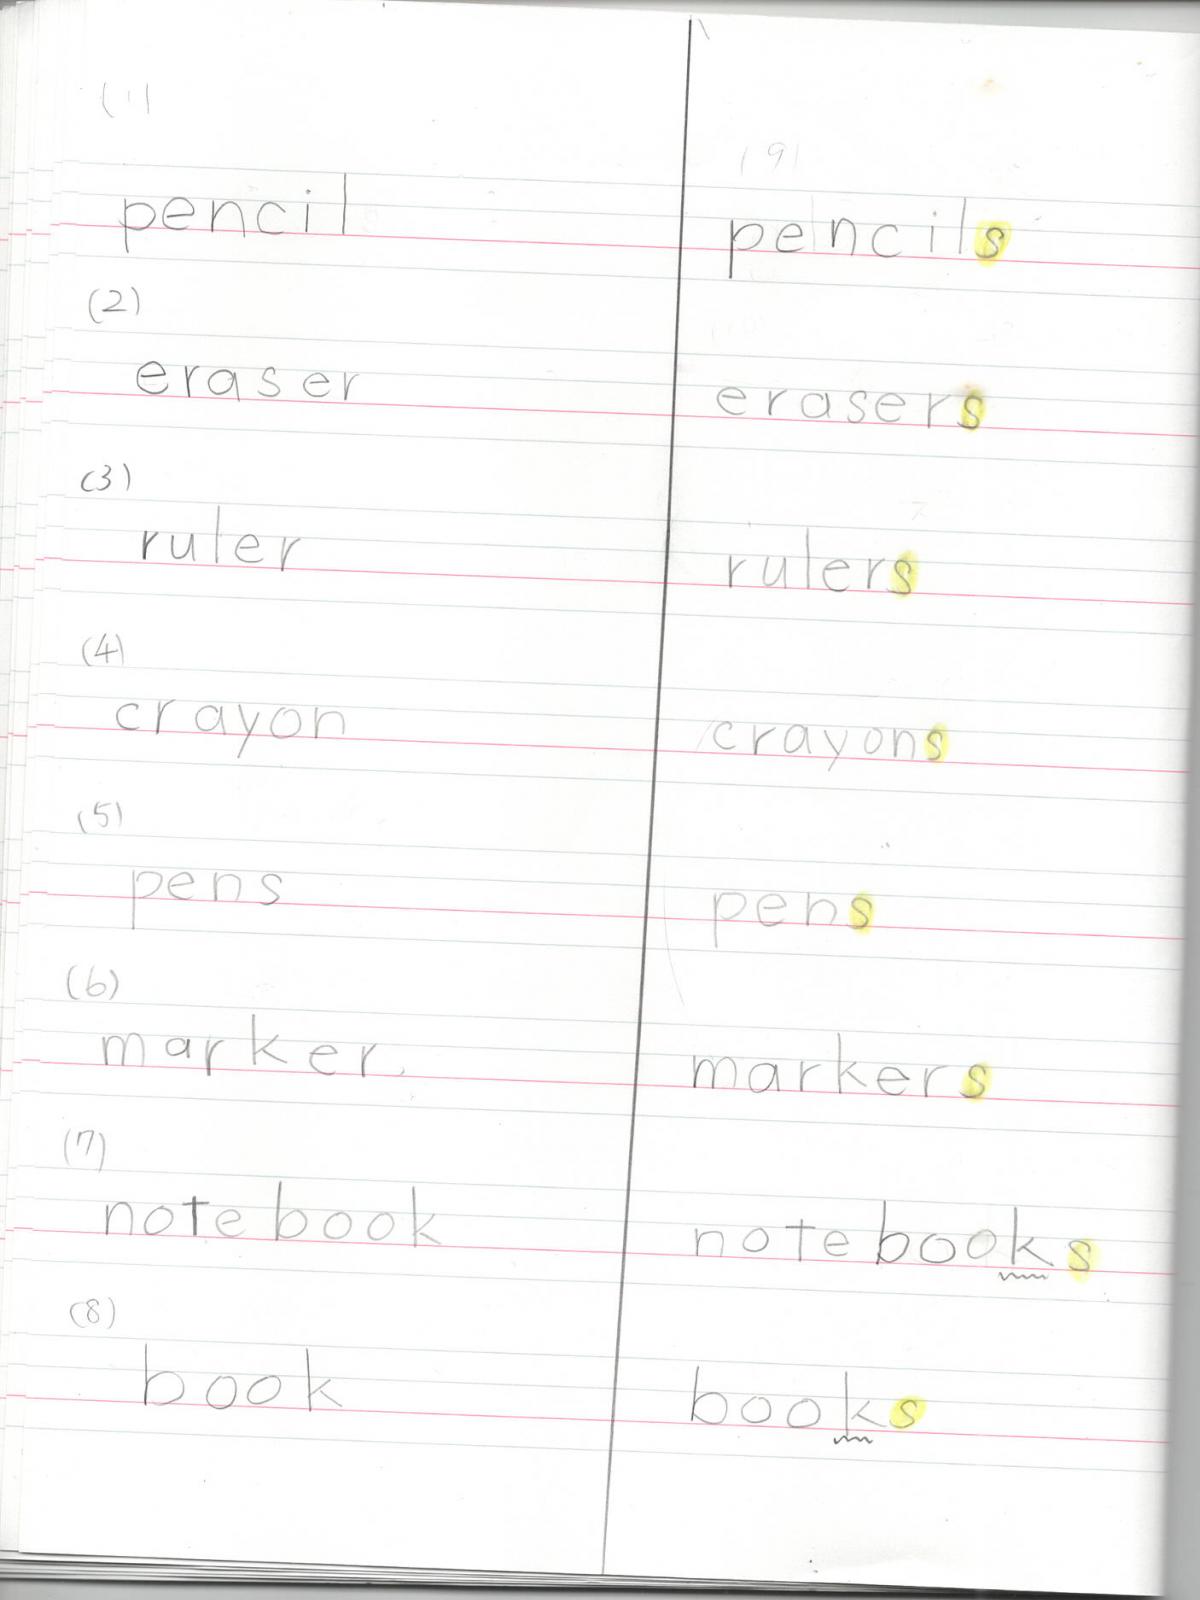 (1)
pencil
(2)
eraser
(3)
ruler
(4)
crayon
(5)
pens
(6)
marker.
(7)
notebook
(8)
book
(9)
pencils
erasers
rulers
crayons
pens
markers
notebooks
books